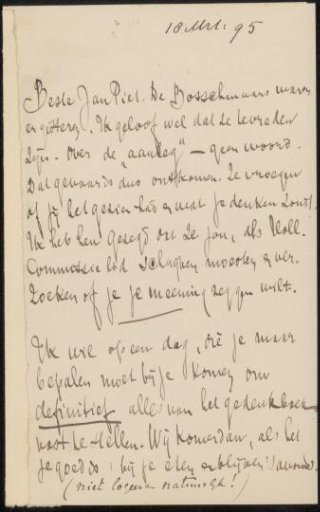 18 Mrt. 95
Beste Jan Piet. De Bosschenaars waren
er gisteren. Ik geloof wel dat ze tevreden
zijn. Over de „aanleg" — geen woord.
Dat gevaar is dus ontkomen. Ze vroegen
of jij het gezien had en wat je denken zoudt.
Ik heb hen gezegd dat ze jou, als Holl.
Commissie lid schrijven moesten en ver-
zoeken of je je meening zeggen wilt.
Ik wil op een dag, die je maar
bepalen moet bij je komen om
definitief alles van het gedenkboek
vast te stellen. Wij komen dan, als het
je goed is: bij je eten en blijven 's avonds.
(niet logeeren natuurlijk!)